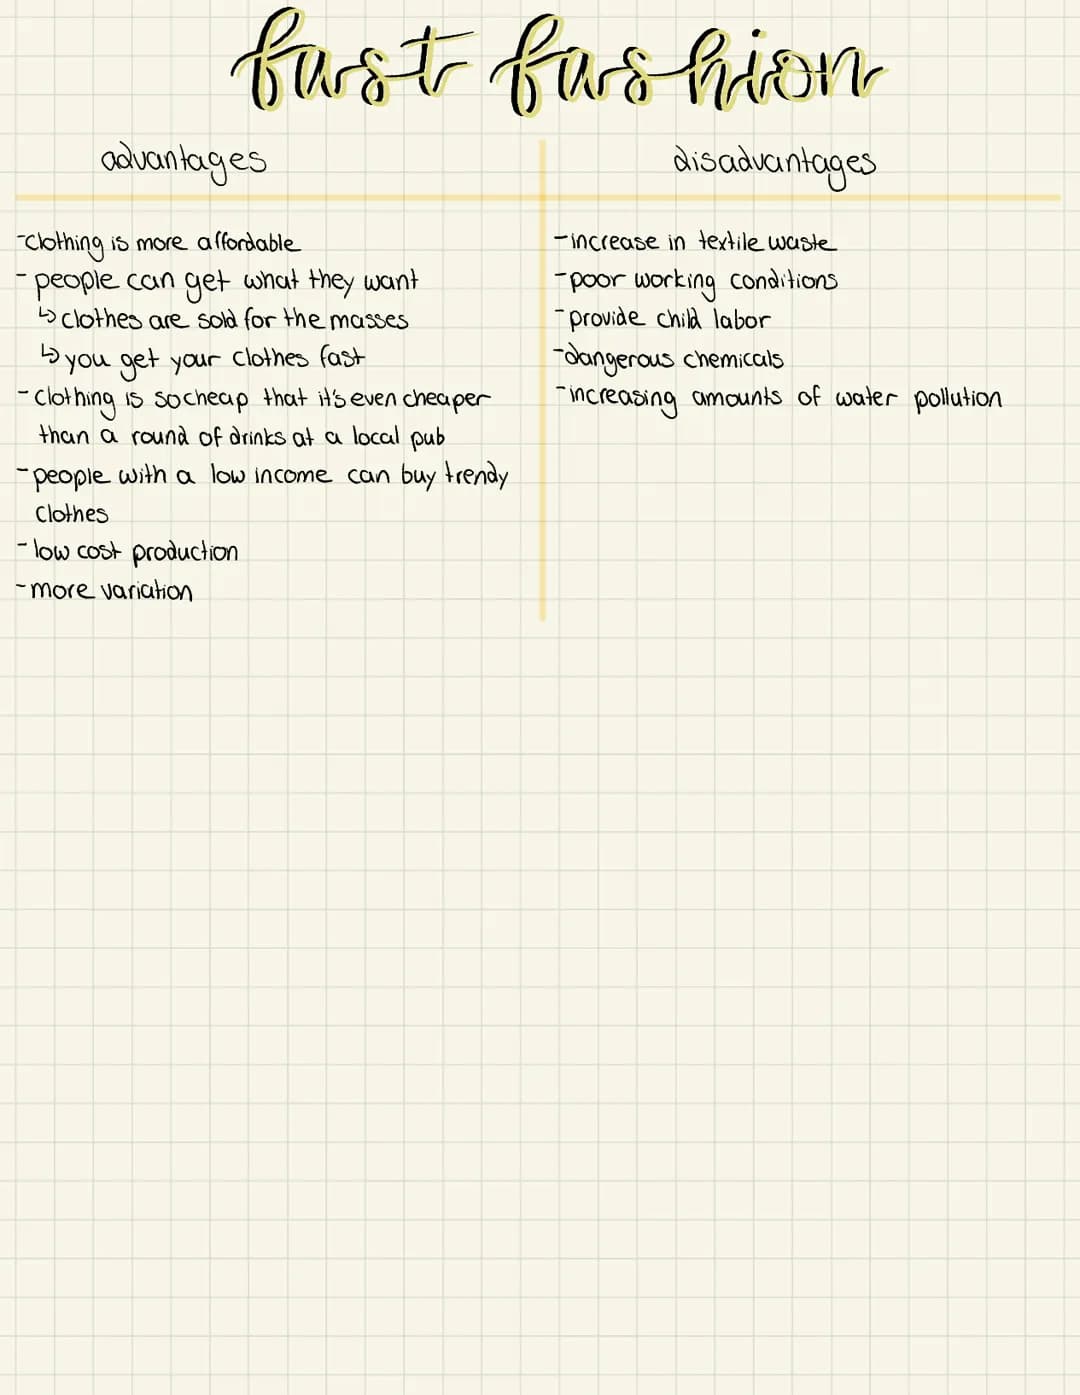 fast fashion
advantages
disadvantages
-clothing is more affordable
- people can get what they want
↳ clothes are sold for the masses
↳ you get your clothes fast
- clothing is so cheap that it's even cheaper
than a round of drinks at a local pub
- people with a low income can buy trendy
clothes
- low cost production
- more variation
- increase in textile waste
- poor working conditions
- provide child labor
- dangerous chemicals
- increasing amounts of water pollution